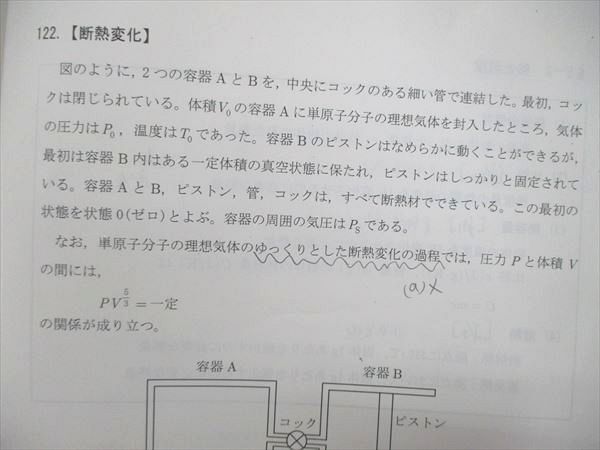 122.【断熱変化】
図のように，2つの容器AとBを，中央にコックのある細い管で連結した。最初，コッ
クは閉じられている。体積V₀の容器Aに単原子分子の理想気体を封入したところ，気体
の圧力はP₀，温度はT₀であった。容器Bのピストンはなめらかに動くことができるが，
最初は容器B内はある一定体積の真空状態に保たれ，ピストンはしっかりと固定されて
いる。容器AとB，ピストン，管，コックは，すべて断熱材でできている。この最初の
状態を状態0(ゼロ)とよぶ。容器の周囲の気圧はPₛである。
なお，単原子分子の理想気体のゆっくりとした断熱変化の過程では，圧力Pと体積V
の間には，
(a)X
PV^(5/3)＝一定
の関係が成り立つ。
容器A
容器B
コック
ピストン